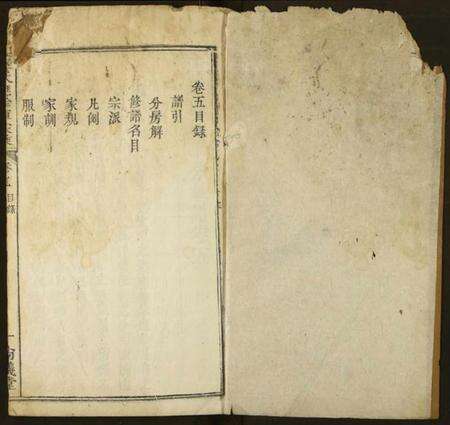 卷五目錄
譜引
分房解
修譜名目
宗派
凡例
家規
家訓
服制
卷五 目錄
一